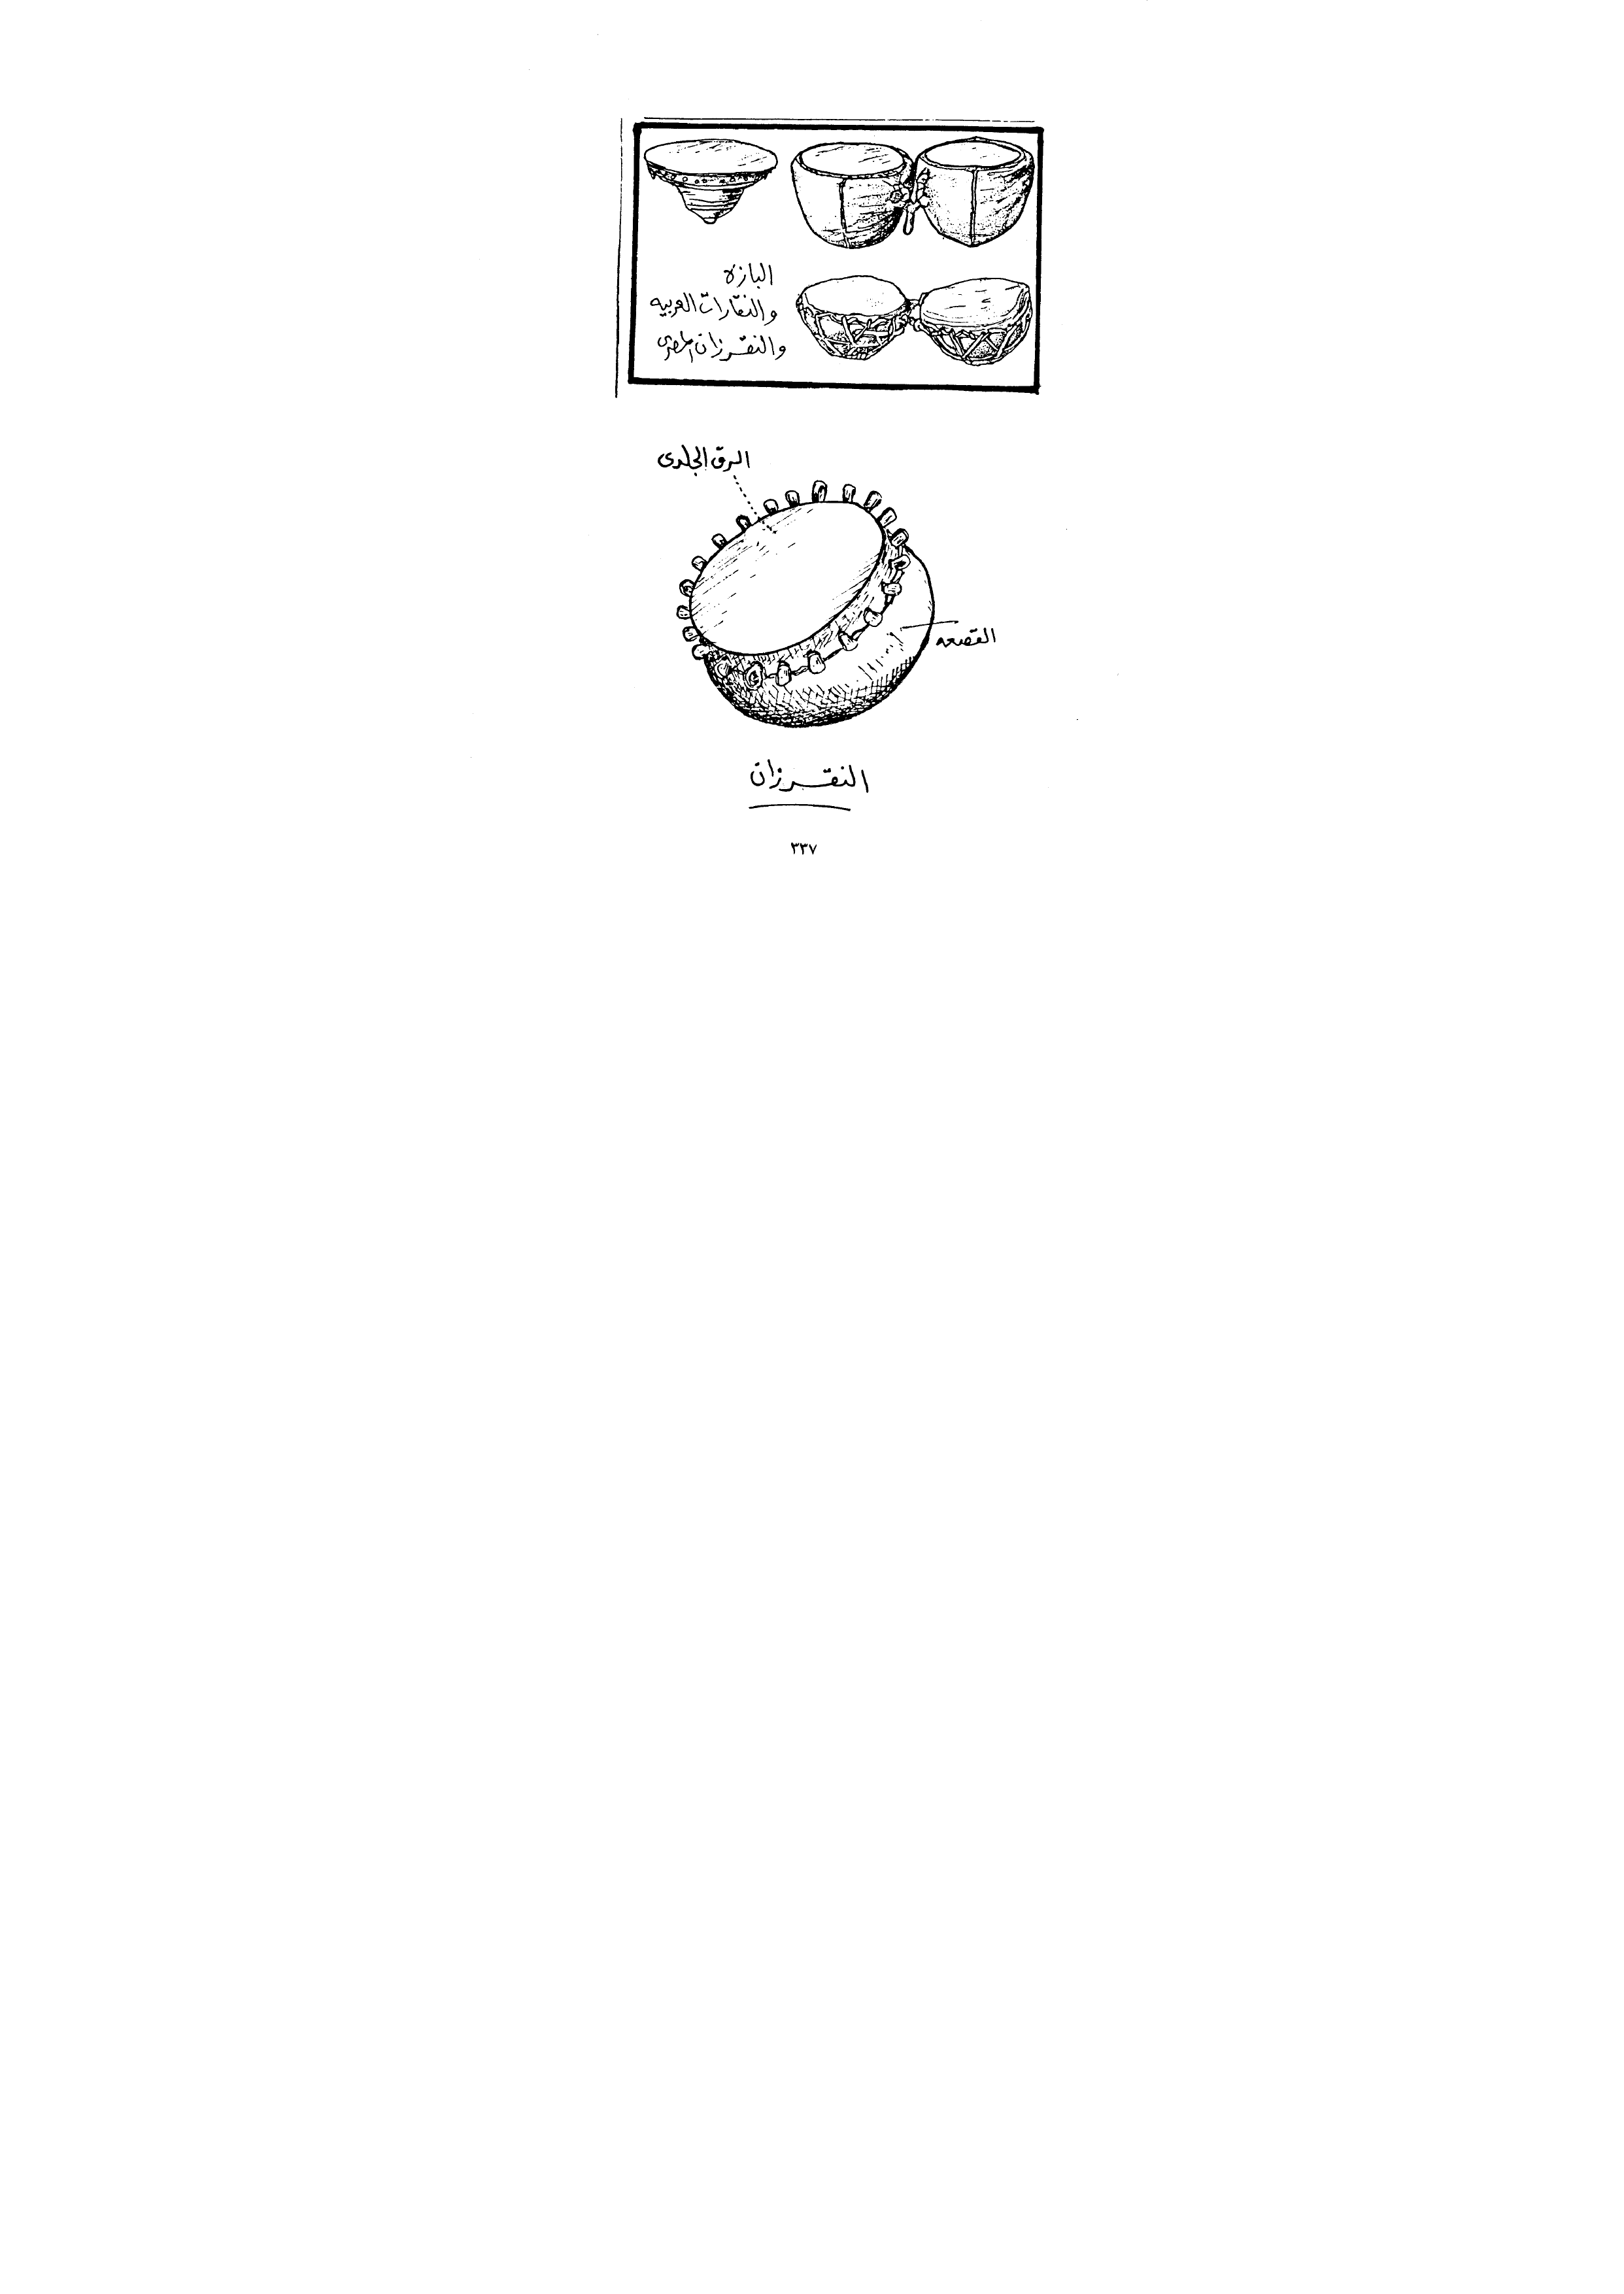 البازه
والنقارات العربيه
والنقرزان المصرى
الرق الجلدى
القصعه
النقرزان
٣٣٧